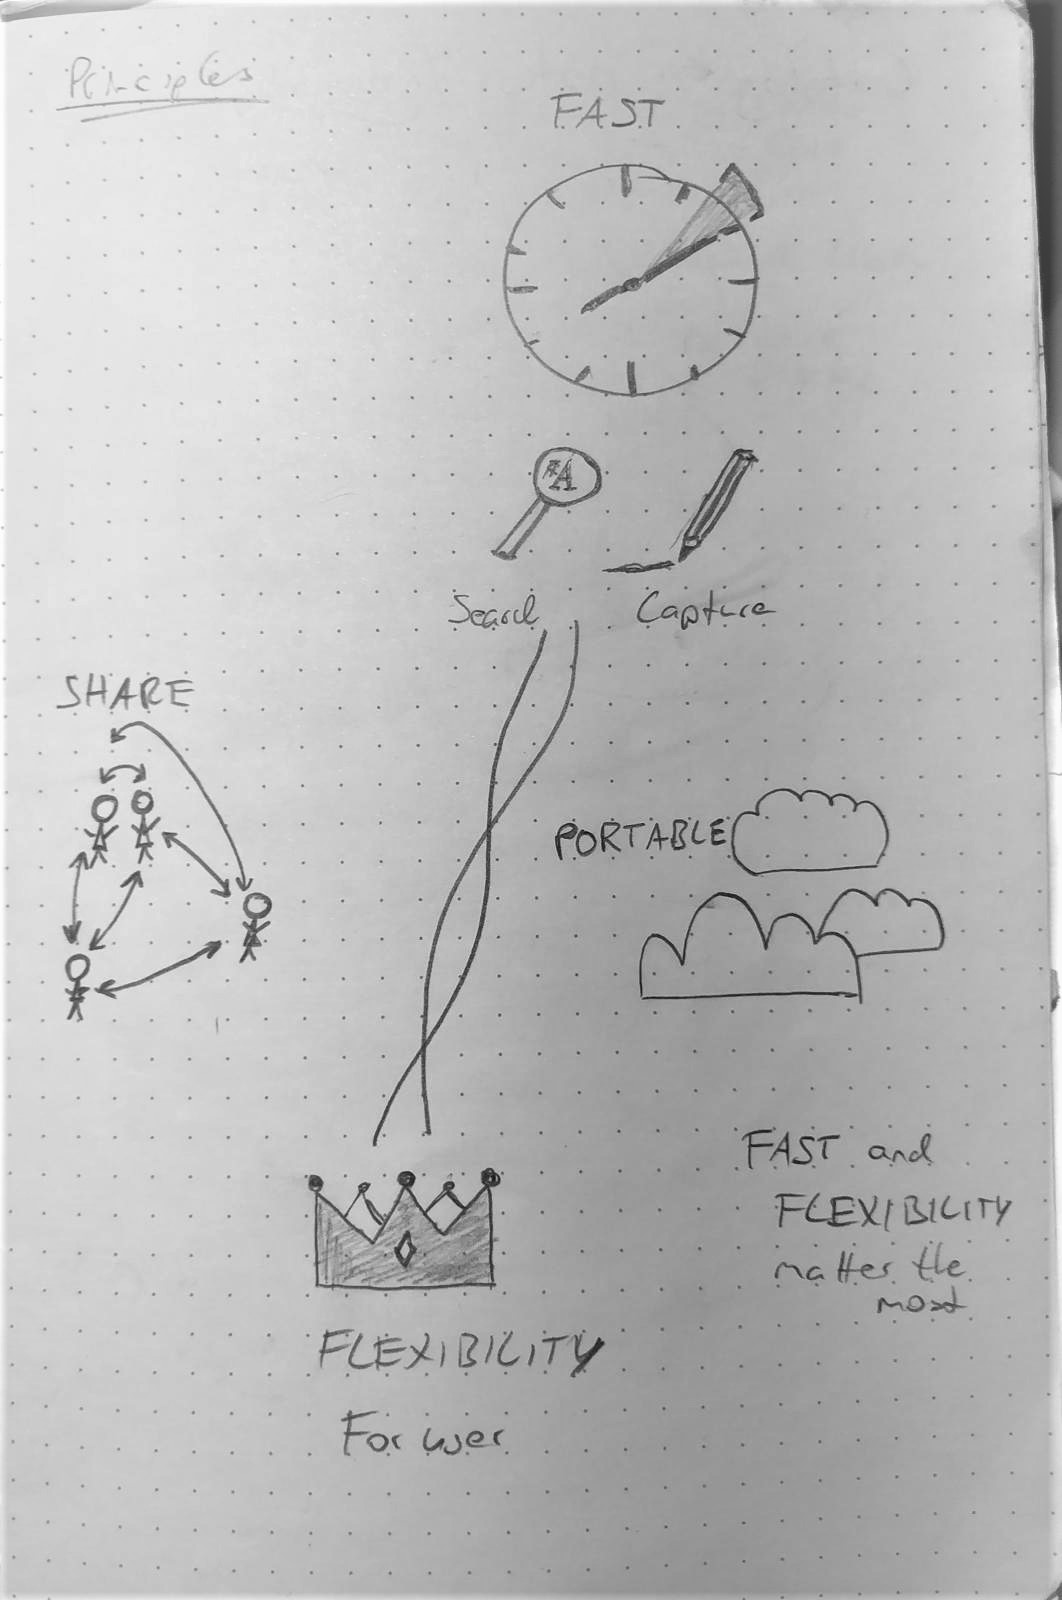 Principles
FAST
A
Search
Capture
SHARE
PORTABLE
FAST and
FLEXIBILITY
matter the
most
FLEXIBILITY
For user